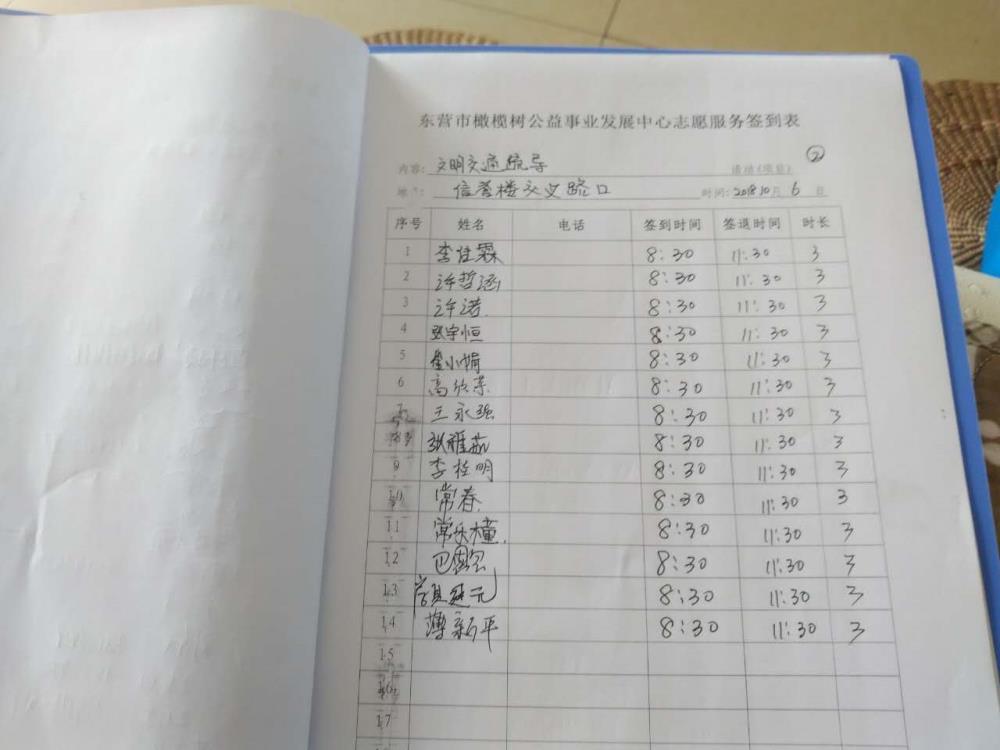 东营市橄榄树公益事业发展中心志愿服务签到表
②
内容: 文明交通疏导 活动(项目)
地 : 信誉楼交叉路口 时间: 2018 10 月 6 日
序号 姓名 电话 签到时间 签退时间 时长
1 李佳霖 8:30 11:30 3
2 许哲涵 8:30 11:30 3
3 许诺 8:30 11:30 3
4 张宇恒 8:30 11:30 3
5 小娟 8:30 11:30 3
6 高欣 8:30 11:30 3
7 王永强 8:30 11:30 3
张雅茹 8:30 11:30 3
9 李桂明 8:30 11:30 3
10 常春 8:30 11:30 3
11 常乐橦 8:30 11:30 3
12 巴 8:30 11:30 3
13 元 8:30 11:30 3
14 薄新平 8:30 11:30 3
15
16
17